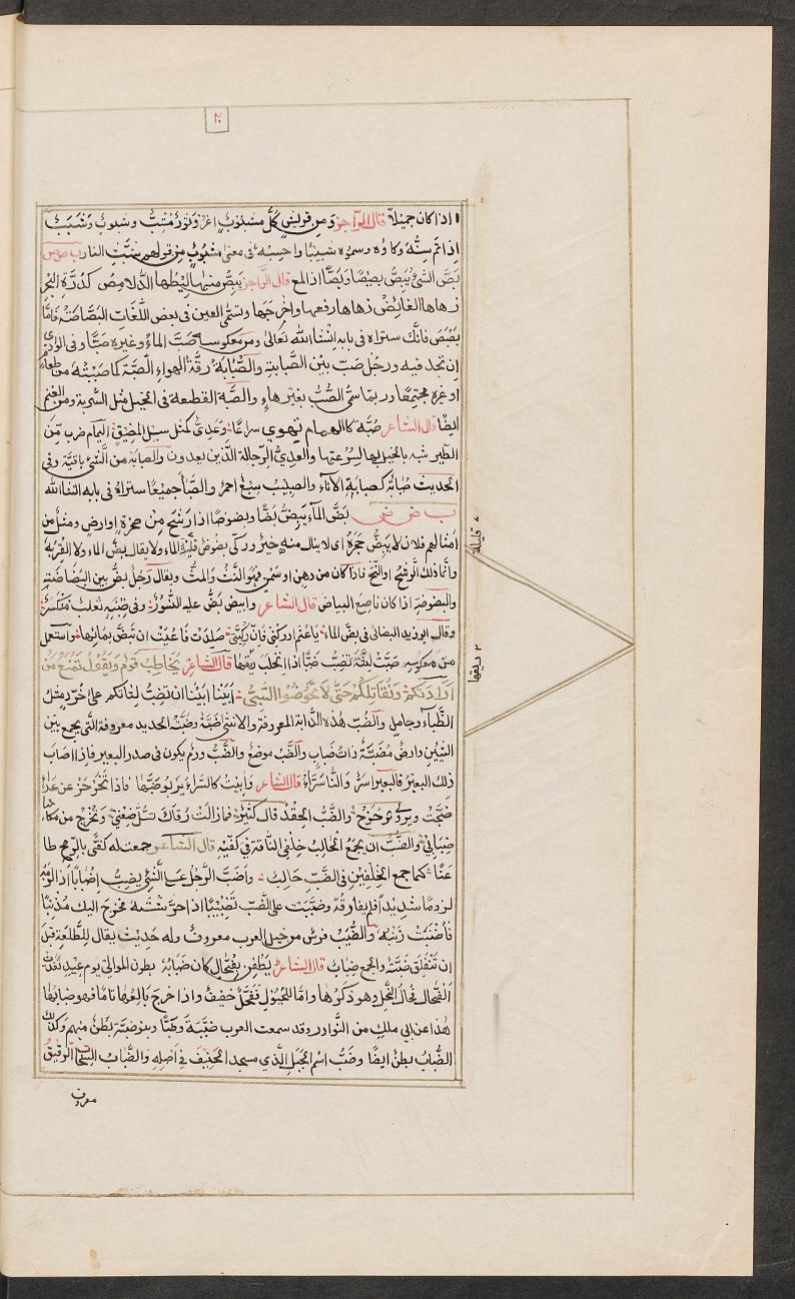 ٢٠
اذا كان جميلا قال الراجز ومن قريش كل مشبوب اغر وثور مشب وشبوب وشبب
اذا تم سنه وذكاؤه وسموه شبيبا واحسبه فى معنى مشبوب من قولهم شبت النار ب ص ص
بص الشئ يبص بصيصا وبصا اذا لمع قال الراجز يبص منها ليطها الدلامص كدرة البحر
زهاها الغائص زهاها رفعها واخرجها وتسمى العين فى بعض اللغات البصاصة فاما
بصبص فانك ستراه فى بابه ان شاء الله تعالى ومن معكوسه صب الماء وغيره صبا وفى الوادى
ان تجد فيه ورجل صب بين الصبابة والصبابة رقة الهواء الصبة كما صببته من طعام
او غيره مجتمعا وربما سمى الصب بغير هاء والصبة القطعة فى الخيل مثل السربة ومن الغنم
ايضا قال الشاعر صبة كاليمام تهوى سراعا وعدى كمثل سيل المضيق اليمام ضرب من
الطير شبه بالخيل بها لسرعتها والعدى الرجالة الذين يعدون والصبابة من الشئ باقيه وفى
الحديث صبابة كصبابة الاناء والصبيب صبغ احمر والصبا جميعا ستراه فى بابه ان شاء الله
ب ض ض بض الماء يبض بضا وبضوضا اذا رشح من صخرة او ارض ومثل من
امثالهم فلان لا يبض حجره اى لا ينال منه خير وركى بضوض قليلة الماء ولا يقال بض الماء ولا القربة
وانما ذلك الرشح او النتح فاذا كان من دهن او سمن فهو النث والمث ويقال رجل بض بين البضاضة
والبضوضة اذا كان ناصع البياض قال الشاعر وابيض بض عليه النسور وفى ضبنه ثعلب منكسر
وقال ابو زيد فى بض الماء يا عثم ادركنى فان ركيتى صلدت فاعيت ان تبض بمائها واستعمل
من معكوسه ضبت لثته تضب ضبا اذا انحلب ريقها قال الشاعر يخاطب قوم ويقول نمنع من
ارادتكم ونقاتلكم حتى لا تخوضوا السبى ابينا ابينا ان تضب لثاتكم على خرد مثل
الظباء وجامل والضب هذه الدابة المعروفة والانثى ضبة وضبة الحديد معروفة التى يجمع بين
الشيئين وارض مضبة ذات ضباب والضب موضع والضب ورم يكون فى صدر البعير فاذا اصاب
ذلك البعير فالبعير اسر والناقة سراء قال الشاعر وابيت كالسراء يربو ضبها فاذا تحزحز عن عداء
ضجت والضب الحقد قال كثير فما زالت رقاك تسل ضغنى وتخرج من مكامنها
ضبابى والضب ان يجمع الحالب خلفى الناقة فى كفيه قال الشاعر جمعت له كفى بالرمح طا
عنا كما جمع الخلفين فى الضب حالب واضب الرجل على الشئ يضب اضبابا اذا لزمه
لزوما شديدا فلم يفارقه وضببت على الضب تضبيبا اذا حرشته فخرج اليك مذنبا
فاخذت بذنبه والضبيب فرس من خيل العرب معروف وله حديث يقال للطلعة قبل
ان تنفلق ضبة والجمع ضباب قال الشاعر يطفن بفحال كان ضبابه بطون الموالى يوم عيد تغدت
الفحال فحال النخل وهو ذكورها
هذا عن ابى مالك من النوادر وقد سمعت العرب ضبة وضبا وبنو ضبة بطن منهم وكذلك
الضباب بطن ايضا وضب اسم الجبل الذى مسجد الخيف فى اصله والضباب السحاب الرقيق
معروف